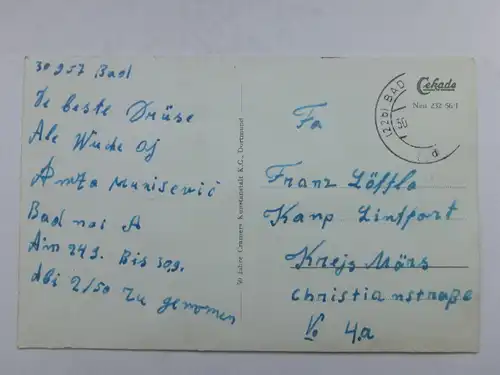 30957 Bad
De beste Drüse
Ale Wuche Oj
Amta Munisević
Bad noi A
Am 249. Bis 309.
dbi 2/50 Zu genomen
50 Jahre Cramers Kunstanstalt K.G., Dortmund
Cekade
Neu 232 56/1
(22b) BAD
Fa
Franz Löffla
Kanp Lintfort
Krejz Mörs
Christianstraße
V. 4.a